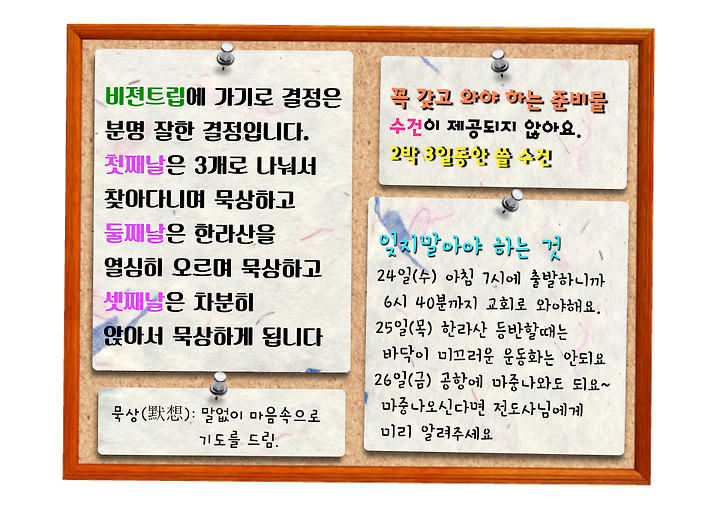 비젼트립에 가기로 결정은
분명 잘한 결정입니다.
첫째날은 3개로 나눠서
찾아다니며 묵상하고
둘째날은 한라산을
열심히 오르며 묵상하고
셋째날은 차분히
앉아서 묵상하게 됩니다
묵상(默想): 말없이 마음속으로
기도를 드림.
꼭 갖고 와야 하는 준비물
수건이 제공되지 않아요.
2박 3일동안 쓸 수건
잊지말아야 하는 것
24일(수) 아침 7시에 출발하니까
6시 40분까지 교회로 와야해요.
25일(목) 한라산 등반할때는
바닥이 미끄러운 운동화는 안되요
26일(금) 공항에 마중나와도 되요~
마중나오신다면 전도사님에게
미리 알려주세요